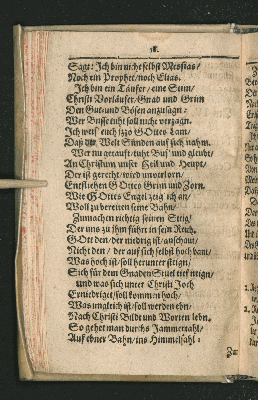 Sagt: Ich bin nicht selbst Messias/
Noch ein Prophet/noch Elias.
Ich bin ein Täufer/eine Stim/
Christi Vorläuffer/Gnad und Grim
Den Gut- und Bösen anzusagn:
Wer Busse tuht soll nicht verzagn.
Ich weis' euch itzo GOttes Lam/
Daß der Welt Sünden auf sich nahm.
Wer nu gerauft/tuht Bus' und gleubt/
An Christum unser Heil und Heupt/
Der ist gerecht/wird unverlorn/
Entfliehet GOttes Grim und Zorn.
Wie GOttes Engel zeig ich an/
Wolt zu bereiten seine Bahn/
Zumachen richtig seinen Stig/
Der uns zu ihm führt in sein Reich.
GOtt den/der niedrig ist/anschaut/
Nicht den/der auf sich selbst hoch baut/
Was hoch ist/soll herunter steign/
Sich für dem Gnaden Stuel tief neign/
und was sich unter Christi Joch
Erniedriget/soll kommen hoch/
Was ungleich ist/soll werden ebn/
Nach Christi Bildt und Worten lebn.
So gehet man durchs Jammertahl/
Auf ebner Bahn/ins Himmelsahl: